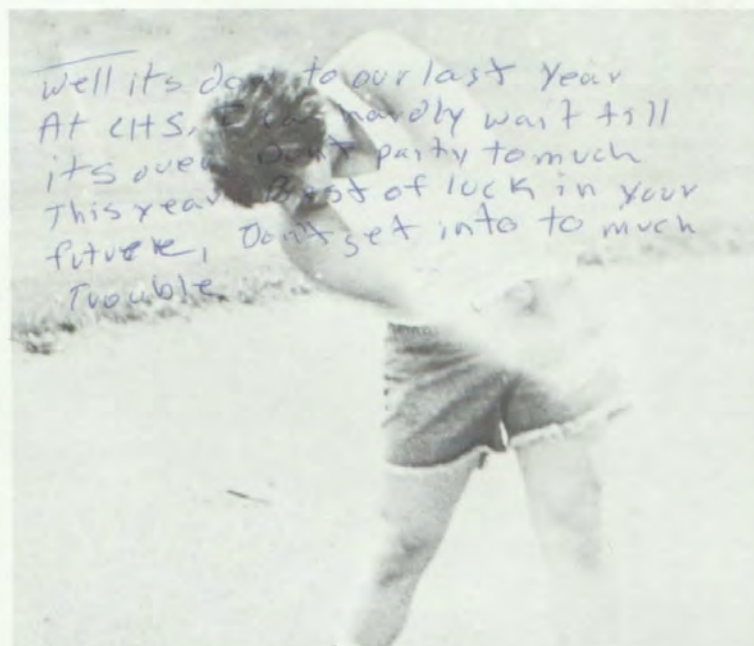 Well its down to our last year
At CHS, I can hardly wait till
its over Don't party to much
This year. Best of luck in your
future, Don't get into to much
Trouble